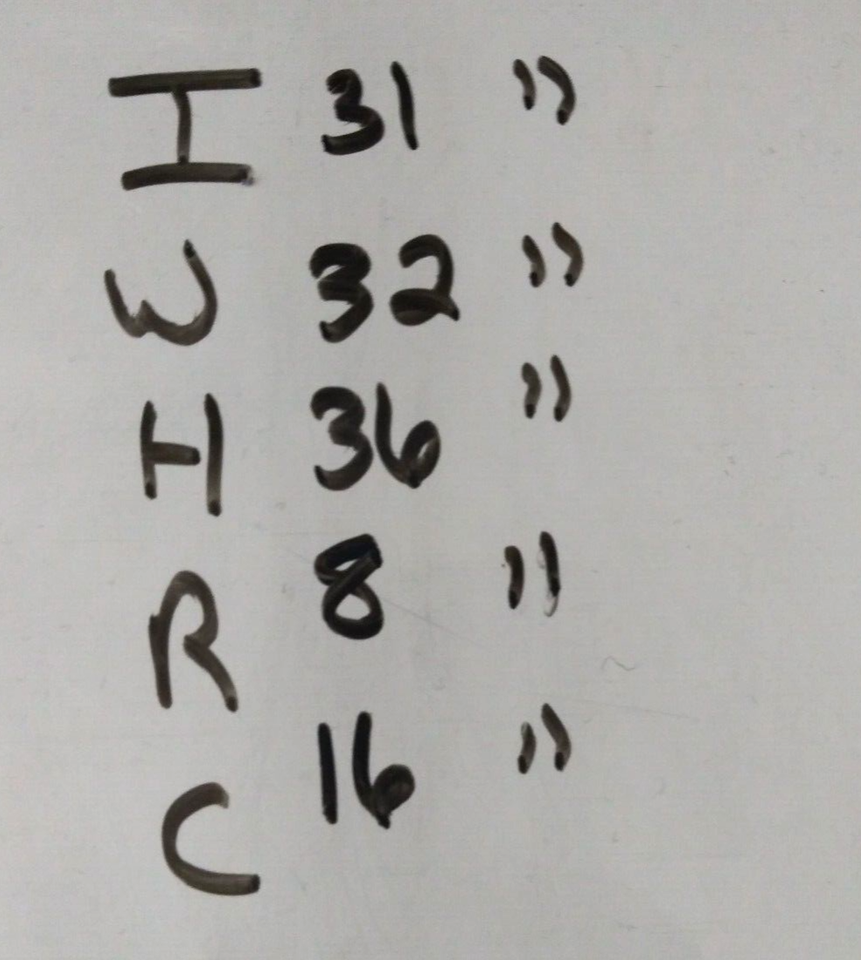 I 31 "
W 32 "
H 36 "
R 8 "
C 16 "